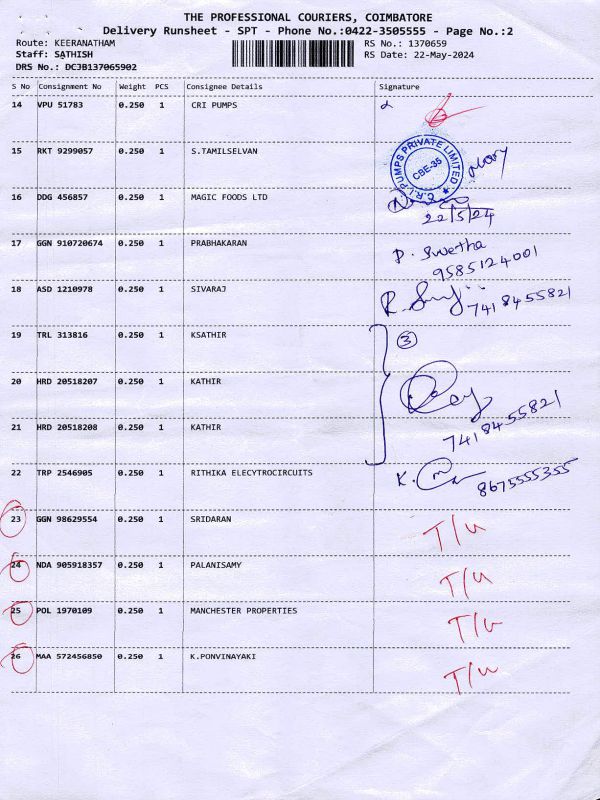 THE PROFESSIONAL COURIERS, COIMBATORE
Delivery Runsheet - SPT - Phone No.:0422-3505555 - Page No.:2
Route: KEERANATHAM
RS No.: 1370659
Staff: SATHISH
RS Date: 22-May-2024
DRS No.: DCJB137065902
S No Consignment No Weight PCS Consignee Details Signature
14 VPU 51783 0.250 1 CRI PUMPS
C.R.I PUMPS PRIVATE LIMITED
CBE-35
15 RKT 9299057 0.250 1 S.TAMILSELVAN
16 DDG 456857 0.250 1 MAGIC FOODS LTD
22/5/24
17 GGN 910720674 0.250 1 PRABHAKARAN P. Swetha
9585124001
18 ASD 1210978 0.250 1 SIVARAJ 7418455821
19 TRL 313816 0.250 1 KSATHIR 3
20 HRD 20518207 0.250 1 KATHIR
21 HRD 20518208 0.250 1 KATHIR 7418455821
22 TRP 2546905 0.250 1 RITHIKA ELECYTROCIRCUITS K. 8675555355
23 GGN 98629554 0.250 1 SRIDARAN T/u
24 NDA 905918357 0.250 1 PALANISAMY T/u
25 POL 1970109 0.250 1 MANCHESTER PROPERTIES T/u
26 MAA 572456850 0.250 1 K.PONVINAYAKI T/u